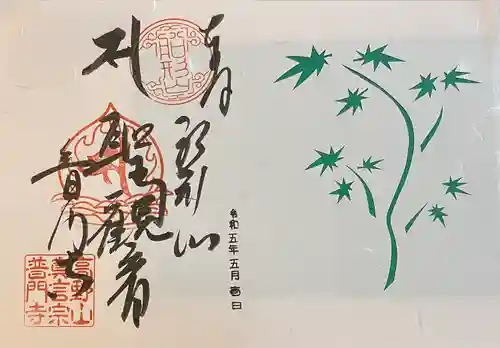 奉拝
船形山
船形山
聖観音
普門寺
高野山
真言宗
普門寺
令和五年五月壱日